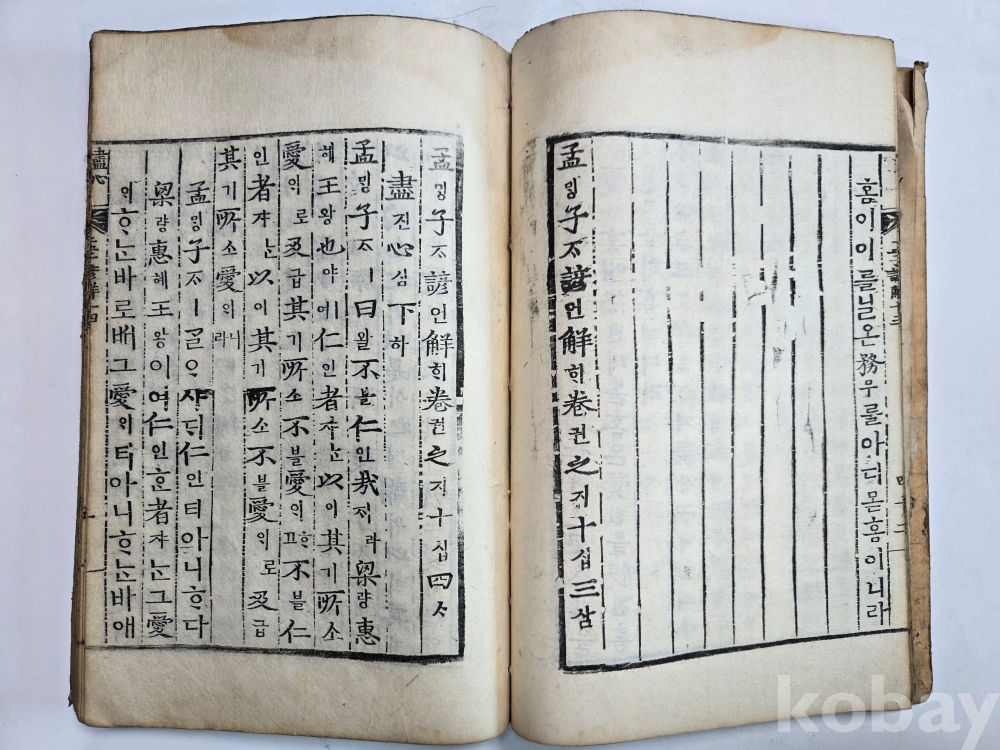 홈이이를닐온務무를아디몯홈이니라
孟ᄆᆡᆼ子ᄌᆞ諺언解ᄒᆡ卷권之지十십三삼
孟ᄆᆡᆼ子ᄌᆞ諺언解ᄒᆡ卷권之지十십四ᄉᆞ
盡진心심下하
孟ᄆᆡᆼ子ᄌᆞㅣ曰왈不블仁인哉ᄌᆡ라梁량惠
혜王왕也야여仁인者쟈ᄂᆞᆫ以이其기所소
愛ᄋᆡ로及급其기所소不블愛ᄋᆡᄒᆞ고不블仁
인者쟈ᄂᆞᆫ以이其기所소不블愛ᄋᆡ로及급
其기所소愛ᄋᆡ니라
孟ᄆᆡᆼ子ᄌᆞㅣᄀᆞᆯᄋᆞ샤ᄃᆡ仁인티아니ᄒᆞ다
梁량惠혜王왕이여仁인ᄒᆞᆫ者쟈ᄂᆞᆫ그愛
ᄋᆡᄒᆞᄂᆞᆫ바로ᄡᅥ그愛ᄋᆡ티아니ᄒᆞᄂᆞᆫ바애
盡心
kobay